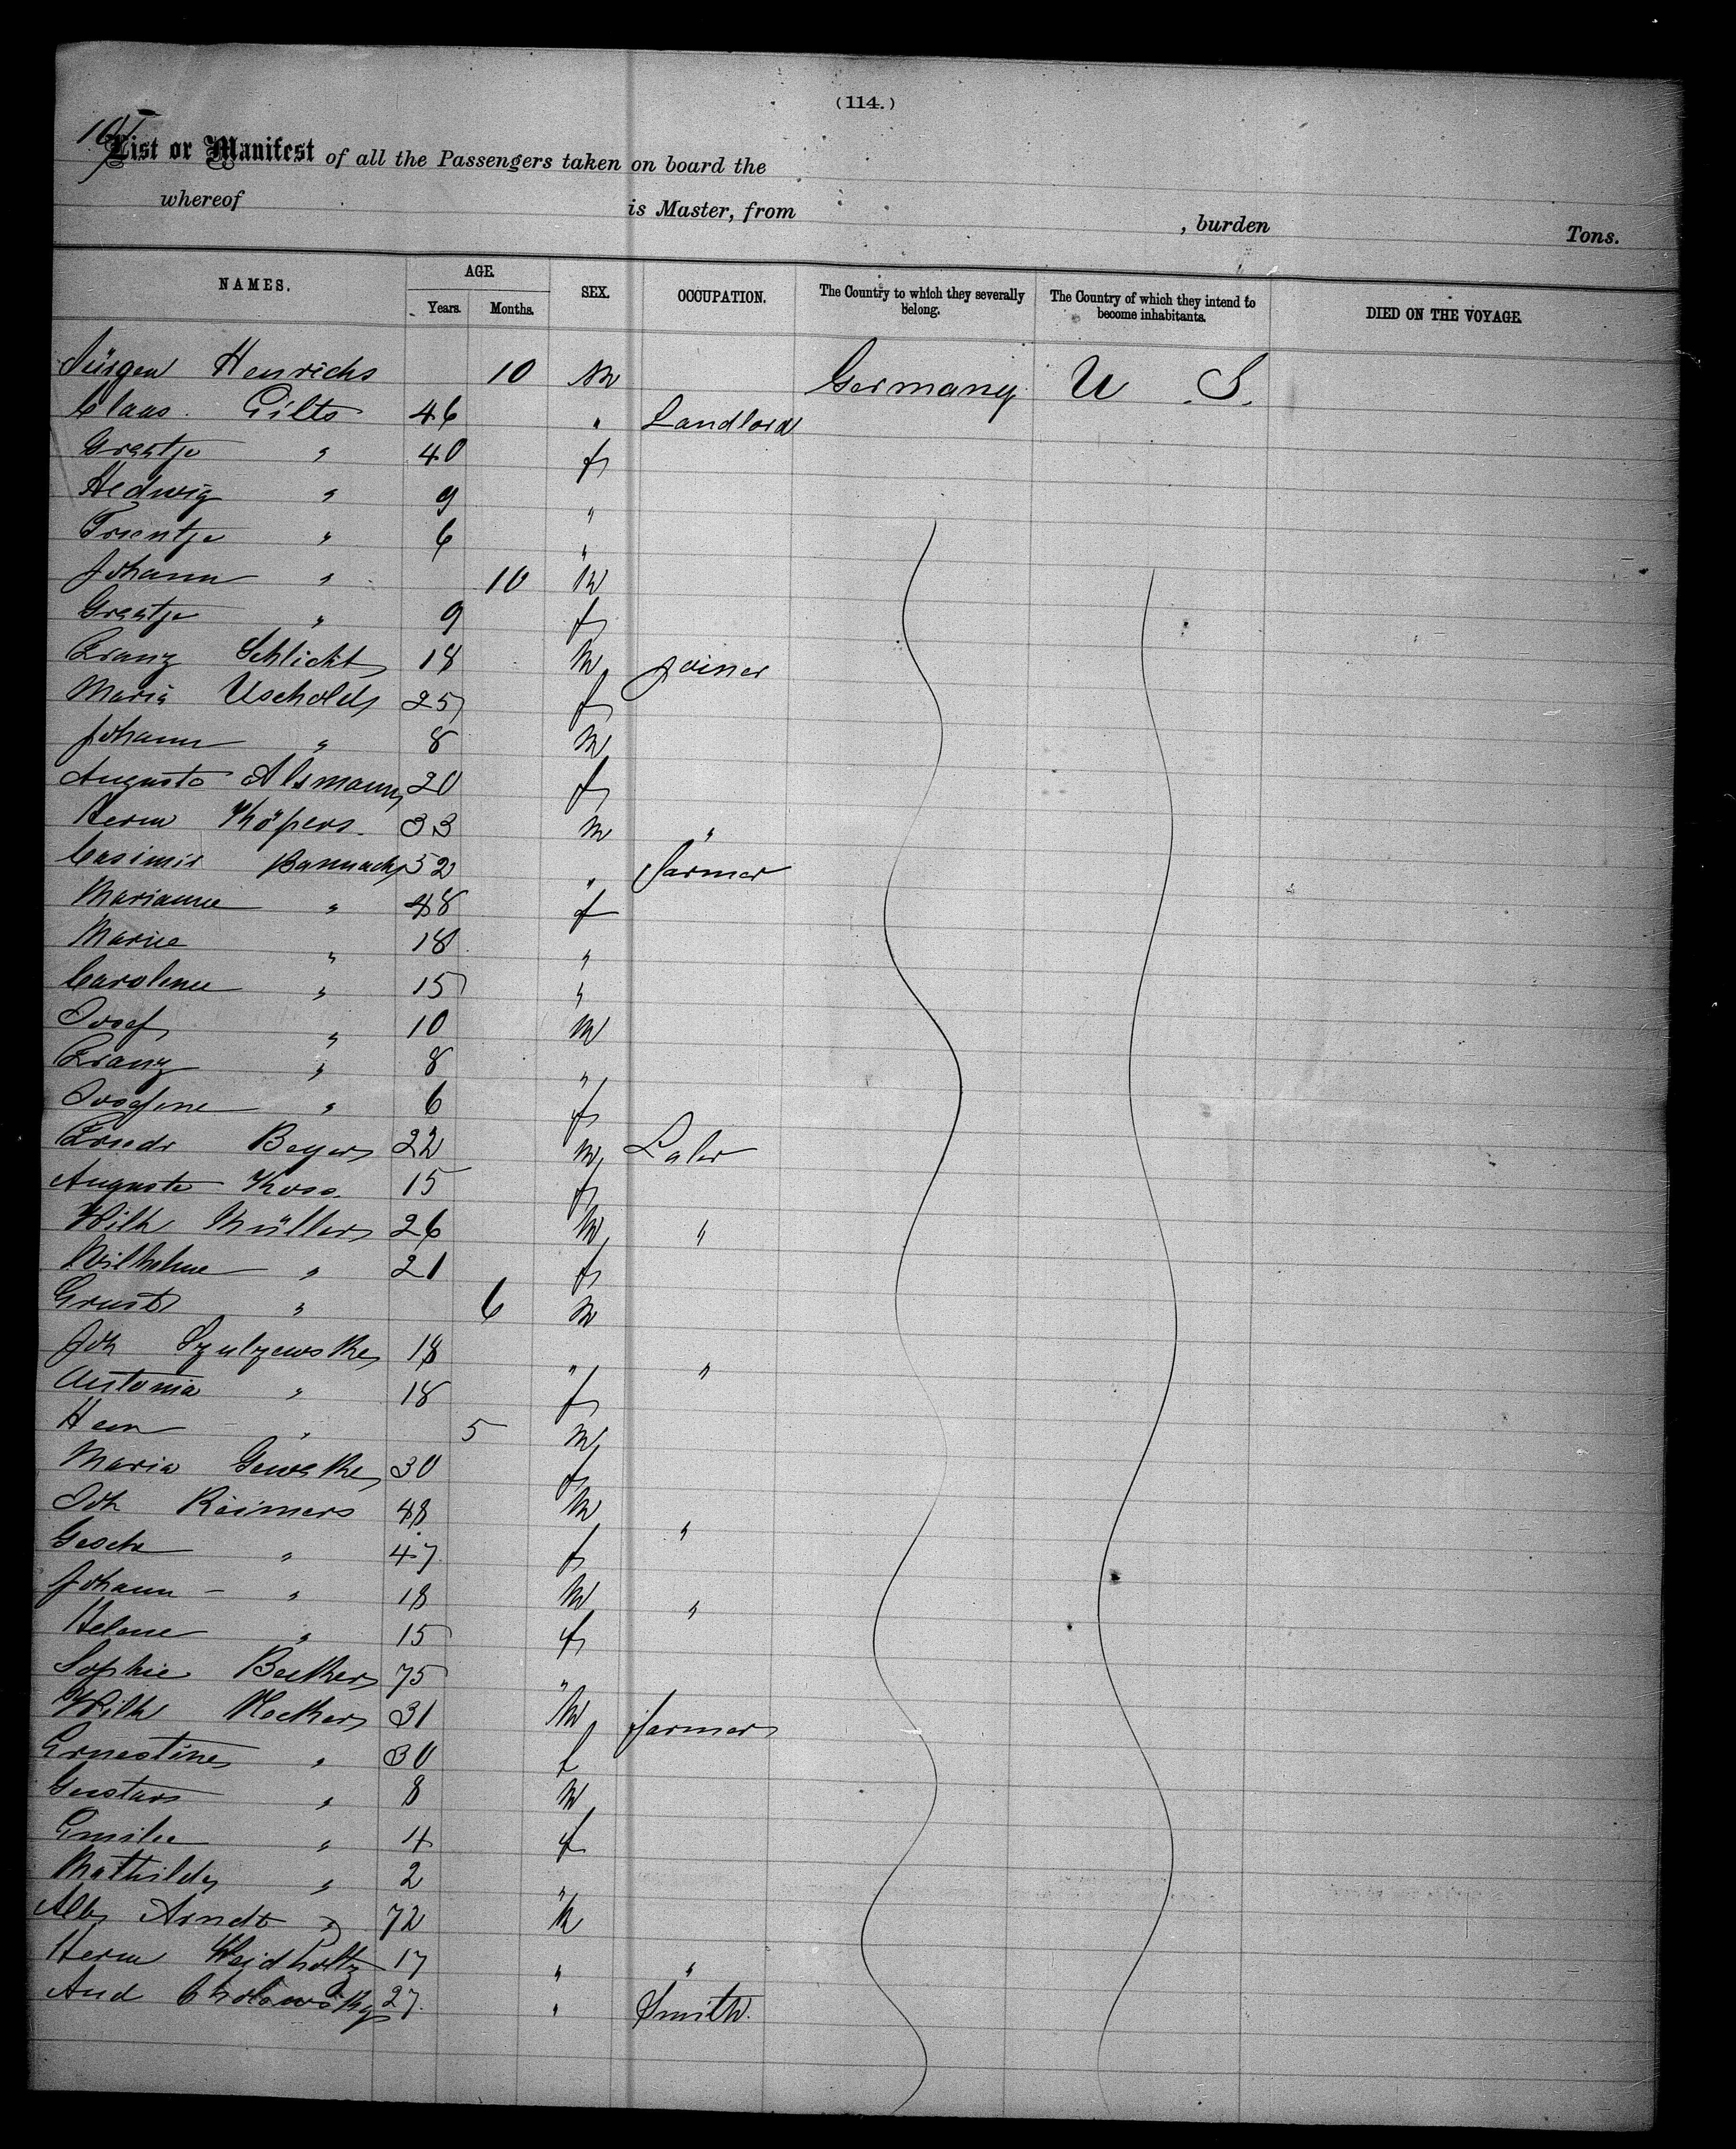 (114.)
List or Manifest of all the Passengers taken on board the
whereof is Master, from , burden Tons.
NAMES. AGE. Years. Months. SEX. OCCUPATION. The Country to which they severally belong. The Country of which they intend to become inhabitants. DIED ON THE VOYAGE.
Jürgen Henrichs 10 m Germany U. S.
Claas Gilts 46 " Landlord
Greetje " 40 f
Hedwig " 9 "
Trientje " 6 "
Johann " 10 m
Greetje " 9 f
Franz Schlicht 18 m joiner
Maria Uschold 25 f
Johann " 8 m
Auguste Alsmann 20 f
Herm Köpers 33 m "
Casimir Bannach 52 " farmer
Marianne " 48 f
Marie " 18 "
Caroline " 15 "
Josef " 10 m
Franz " 8 "
Josefine " 6 f
Friedr Beyer 22 m Labr
Auguste Koss 15 f
Wilh Müller 26 m "
Wilhelme " 21 f
Ernst " 6 m
Joh 18 " "
Antonia " 18 f
Herm " 5 m
Maria 30 f
Joh Reimers 48 m "
Gesche " 47 f
Johann " 18 m "
Helene " 15 f
Sophie Becker 75 "
Wilh 31 m farmer
Ernestine " 30 f
Gustav " 8 m
Emilie " 4 f
Mathilde " 2 "
Alb Arndt " 72 m
Herm Weidholtz 17 " "
And 27 " Smith